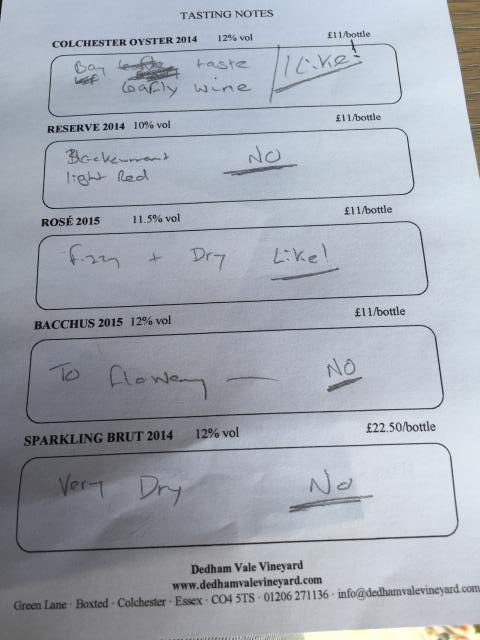 TASTING NOTES
COLCHESTER OYSTER 2014 12% vol £11/bottle
Bay taste I Like!
leaf leafly wine
RESERVE 2014 10% vol £11/bottle
Blackcurrant NO
light Red
ROSÉ 2015 11.5% vol £11/bottle
fizzy + Dry Like!
BACCHUS 2015 12% vol £11/bottle
To flowery — NO
SPARKLING BRUT 2014 12% vol £22.50/bottle
Very Dry No
Dedham Vale Vineyard
www.dedhamvalevineyard.com
Green Lane · Boxted · Colchester · Essex · CO4 5TS · 01206 271136 · info@dedhamvalevineyard.com